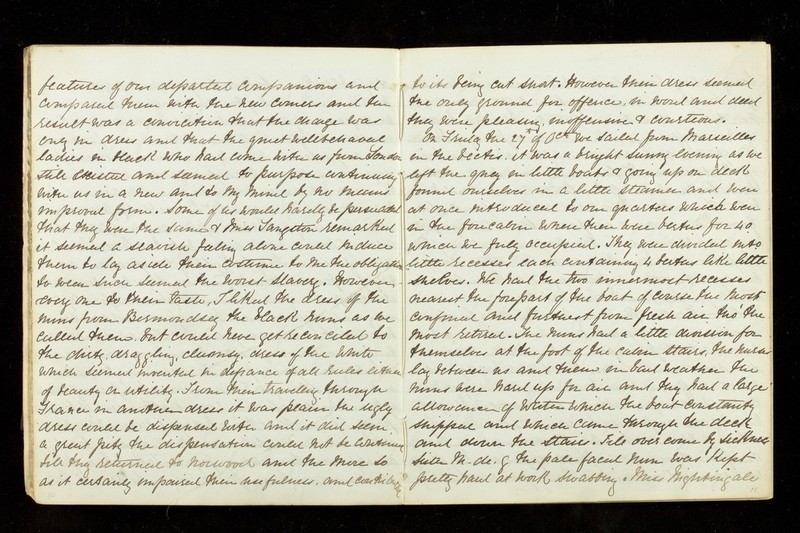 features of our departed companions and
compared them with the new comers and the
result was a conviction that the change was
only in dress and that the quiet wellbehaved
ladies in black who had come with us from London
still existed and seemed to purpose continuing
with us in a new and to my mind by no means
improved form. Some of us would hardly be persuaded
that they were the same & Miss Langston remarked
it seemed a slavish feeling alone could induce
them to lay aside their costume to me the obligation
to wear such seemed the worst slavery. However
every one to their taste, I liked the dress of the
nuns from Bermondsey the black nuns as we
called them. but could never get reconciled to
the dirty, draggling, clumsy, dress of the White
which seemed invented in defiance of all rules either
of beauty or utility. From their traveling through
France in another dress it was plain the ugly
dress could be dispensed with and it did seem
a great pity the dispensation could not be continued
till they returned to Norwood and the more so
as it certainly impaired their usefulness. and
to its being cut short. However their dress seemed
the only ground for offence, in word and deed
they were pleasing, inoffensive & courteous.
On Friday the 27th of Oct we sailed from Marseilles
in the Vectis. it was a bright sunny evening as we
left the quay in little boats & going up on deck
found ourselves in a little steamer and were
at once introduced to our quarters which were
in the forecabin where there were berths for 40
which we fully occupied. They were divided into
little recesses each containing 4 berths like little
shelves. We had the two innermost recesses
nearest the forepart of the boat of course the most
confined and furthest from fresh air tho' the
most retired. The nuns had a little division for
themselves at the foot of the cabin stairs, the nurses
lay between us and them in bad weather the
nuns were hard up for air and they had a large
allowance of water which the boat constantly
shipped and which came through the deck
and down the stairs. Till over come by sickness
Sister M. de. G the pale faced nun was kept
pretty hard at work swabbing. Miss Nightingale